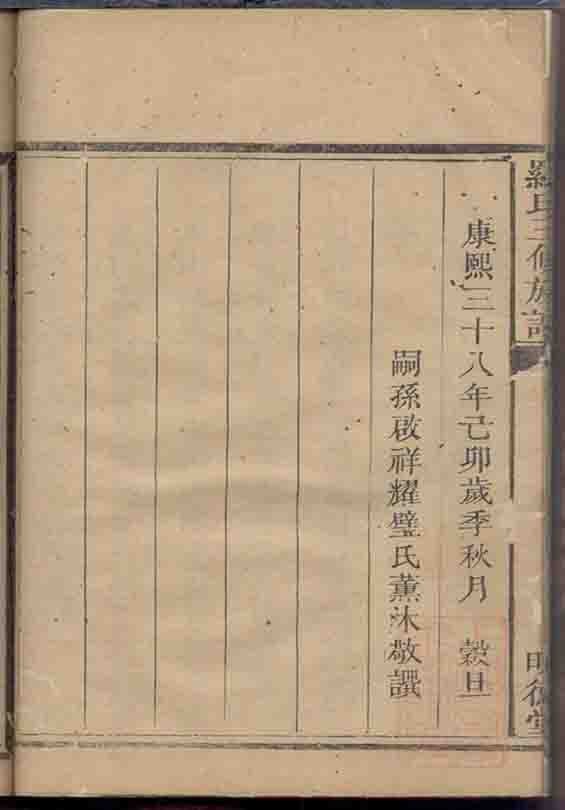 羅氏三修族譜
明德堂
康熙三十八年己卯歲季秋月 穀旦
嗣孫啟祥耀璧氏薰沐敬譔